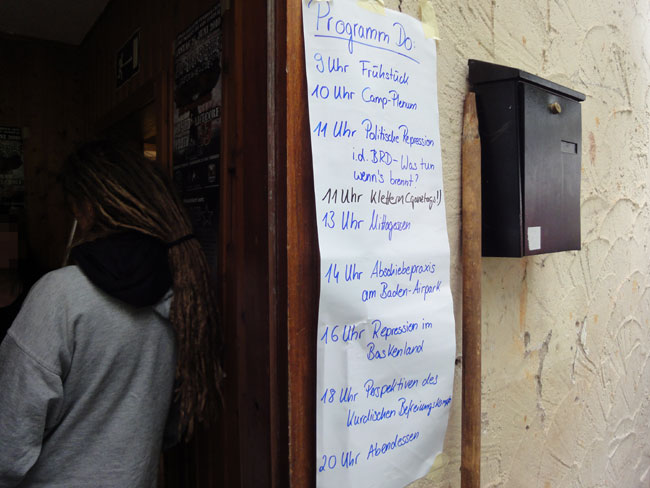 Programm Do:
9 Uhr Frühstück
10 Uhr Camp-Plenum
11 Uhr Politische Repression
i.d. BRD- Was tun
wenn's brennt?
11 Uhr Klettern
13 Uhr Mittagessen
14 Uhr Abschiebepraxis
am Baden-Airpark
16 Uhr Repression im
Baskenland
18 Uhr Perspektiven des
Kurdischen
20 Uhr Abendessen